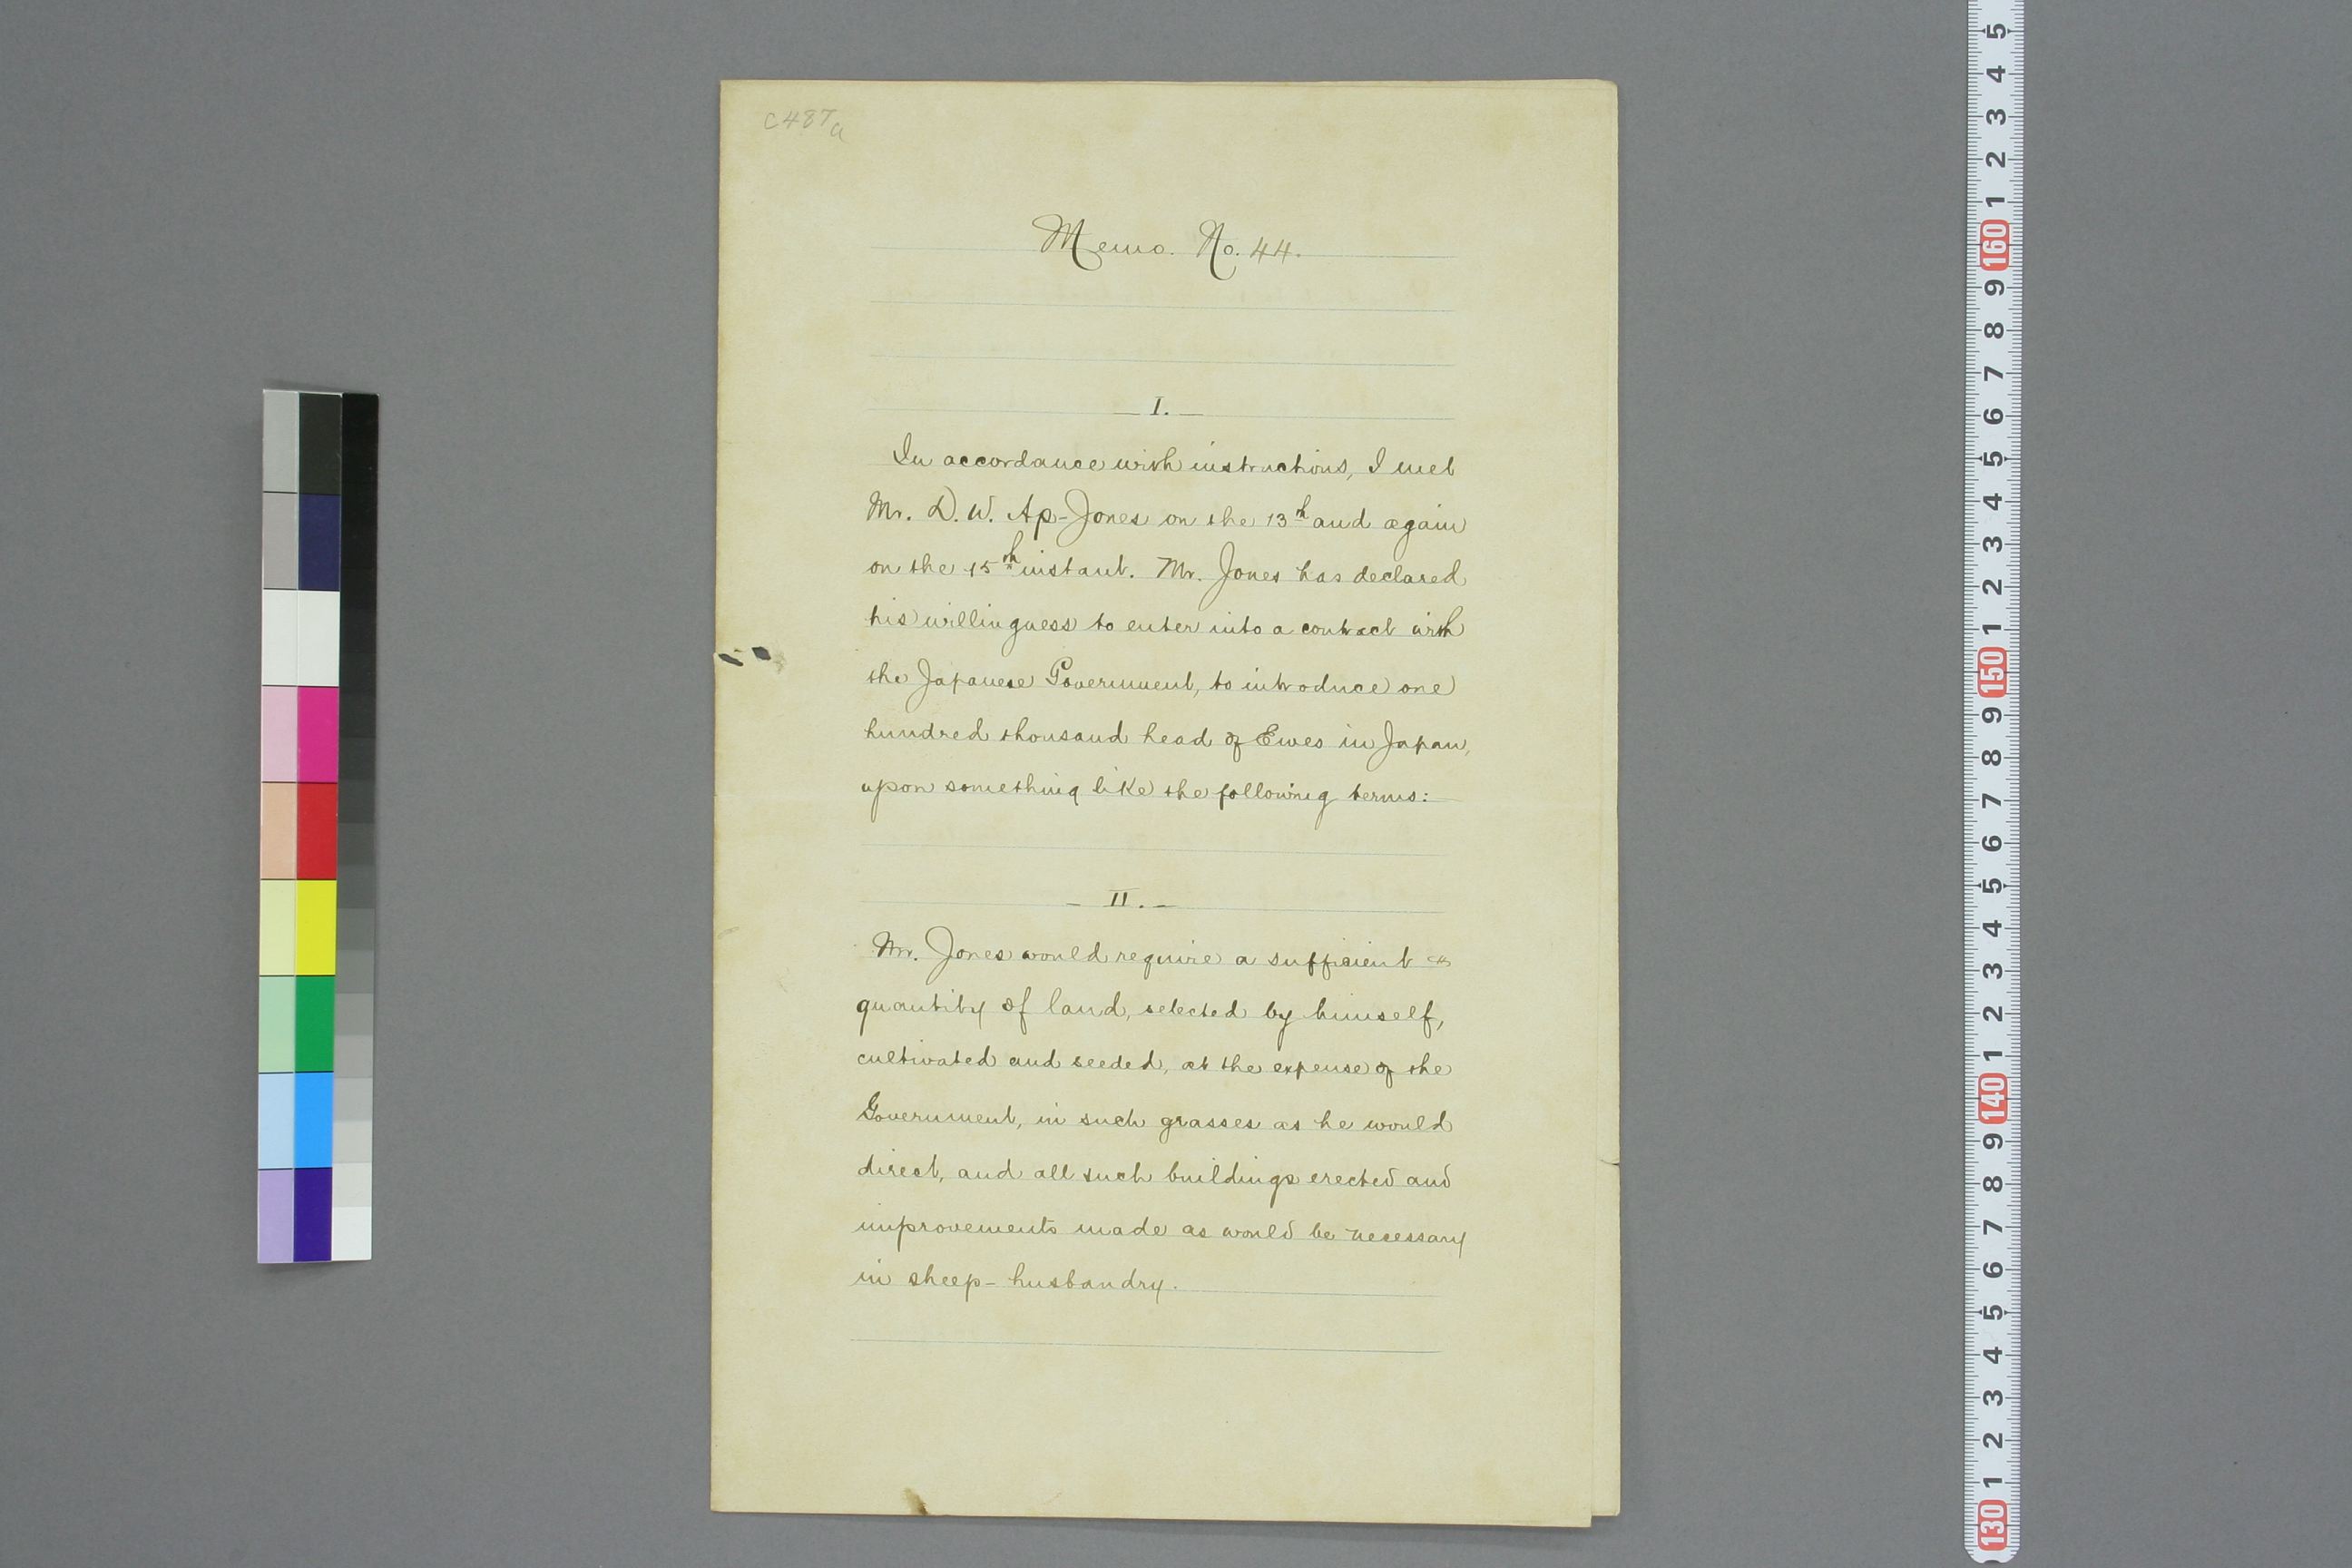 C487a
Memo. No. 44.
— I. —
In accordance with instructions, I met
Mr. D. W. Ap-Jones on the 13th and again
on the 15th instant. Mr. Jones has declared
his willingness to enter into a contract with
the Japanese Government, to introduce one
hundred thousand head of Ewes in Japan,
upon something like the following terms:
— II. —
Mr. Jones would require a sufficient
quantity of land, selected by himself,
cultivated and seeded, at the expense of the
Government, in such grasses as he would
direct, and all such buildings erected and
improvements made as would be necessary
in sheep-husbandry.
5
4
3
2
1
160
9
8
7
6
5
4
3
2
1
150
9
8
7
6
5
4
3
2
1
140
9
8
7
6
5
4
3
2
1
130